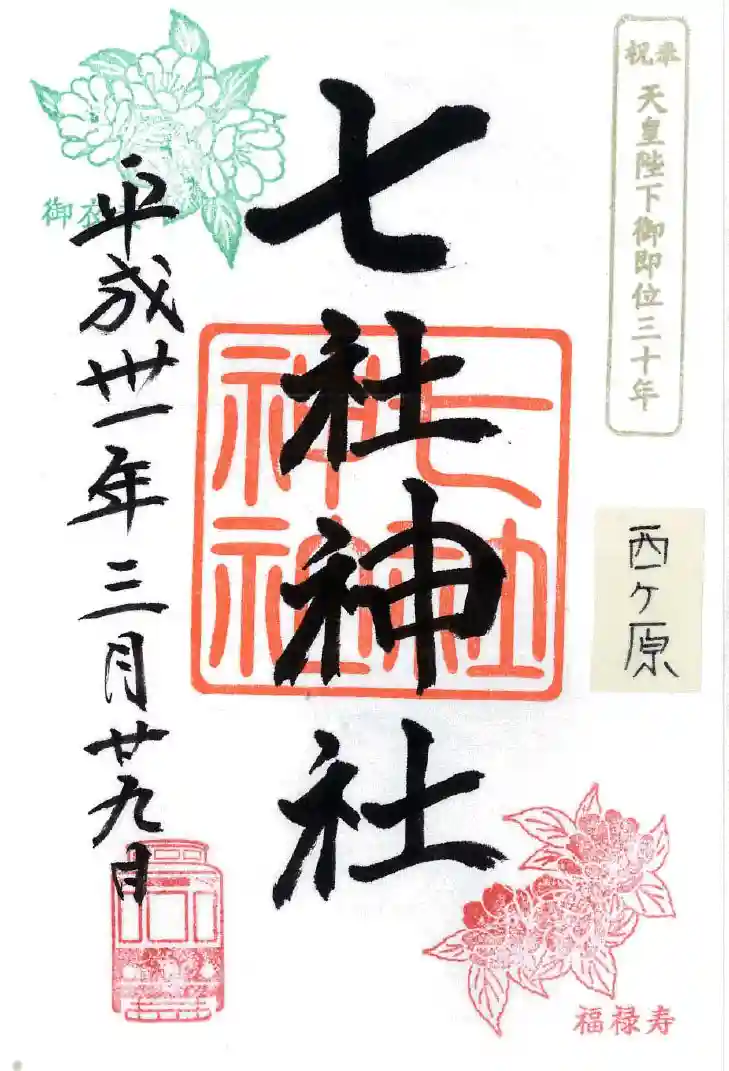 奉祝
天皇陛下御即位三十年
西ヶ原
七社神社
七社
神社
平成丗一年三月廿九日
福禄寿